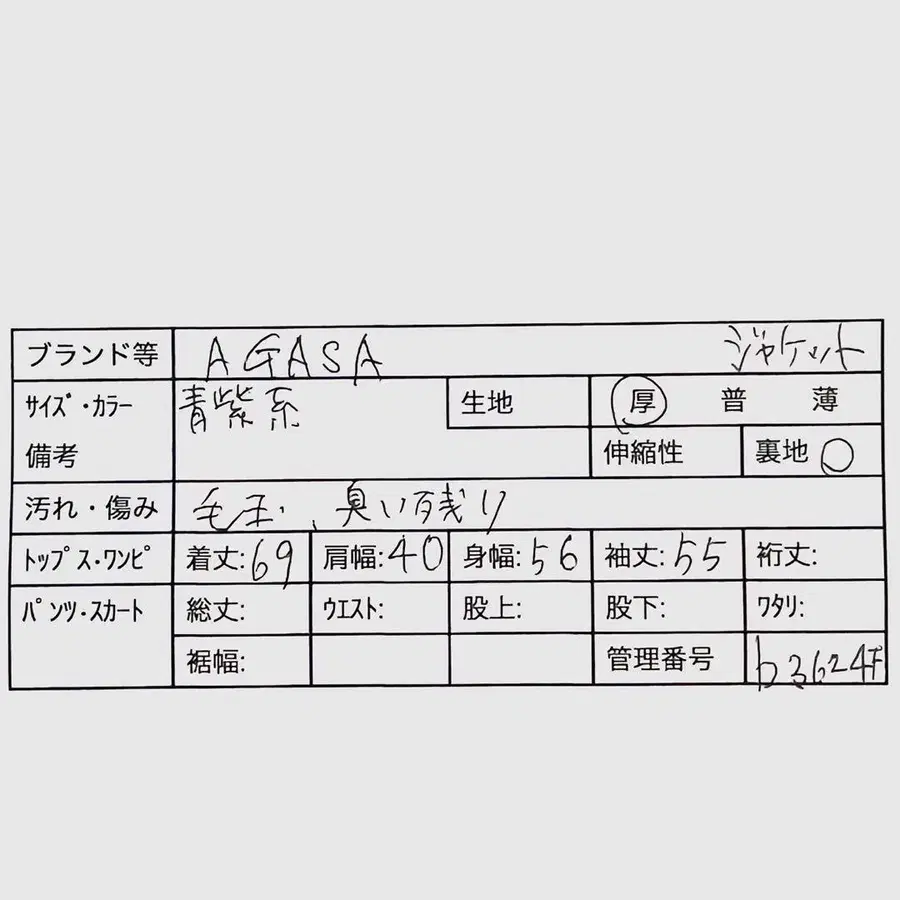 ブランド等 AGASA ジャケット
サイズ・カラー 青紫系 生地 厚 普 薄
備考 伸縮性 裏地 ○
汚れ・傷み 毛玉、臭い残り
トップス・ワンピ 着丈:69 肩幅:40 身幅:56 袖丈:55 裄丈:
パンツ・スカート 総丈: ウエスト: 股上: 股下: ワタリ:
裾幅: 管理番号 b3624F